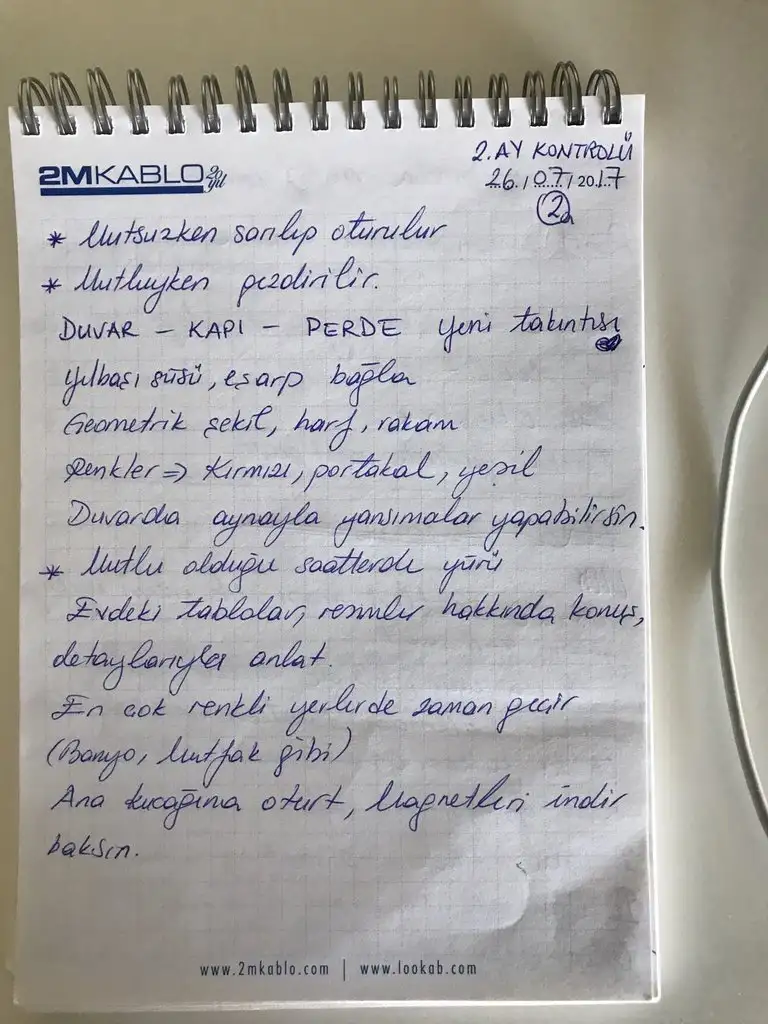 2. AY KONTROLÜ
2MKABLO 20 yıl
26/07/2017
2a
* Mutsuzken sarılıp oturulur
* Mutluyken gezdirilir.
DUVAR - KAPI - PERDE yeni takıntısı
Yılbaşı süsü, eşarp bağla
Geometrik şekil, harf, rakam
Renkler => Kırmızı, portakal, yeşil
Duvarda aynayla yansımalar yapabilirsin.
* Mutlu olduğu saatlerde yürü
Evdeki tablolar, resimler hakkında konuş,
detaylarıyla anlat.
En çok renkli yerlerde zaman geçir
(Banyo, Mutfak gibi)
Ana kucağına oturt, Magnetleri indir
baksın.
www.2mkablo.com | www.lookab.com